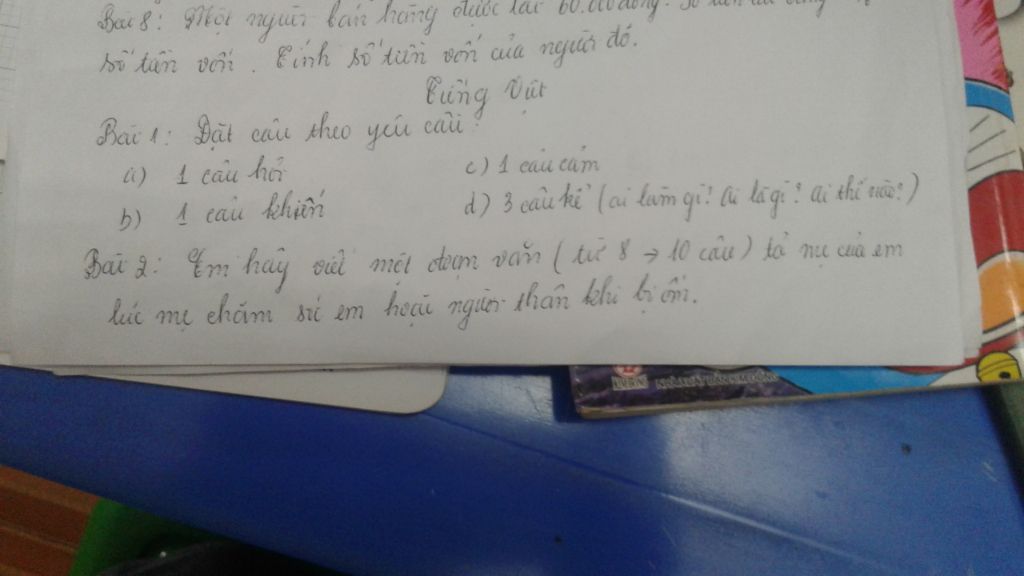 Bài 8: Một người bán hàng được lãi 60.000 đồng. Số tiền lãi bằng
số tiền vốn. Tính số tiền vốn của người đó.
Tiếng Việt
Bài 1: Đặt câu theo yêu cầu:
a) 1 câu hỏi
c) 1 câu cảm
b) 1 câu khiến
d) 3 câu kể (ai làm gì? ai là gì? ai thế nào?)
Bài 2: Em hãy viết một đoạn văn (từ 8 → 10 câu) tả mẹ của em
lúc mẹ chăm sóc em hoặc người thân khi bị ốm.